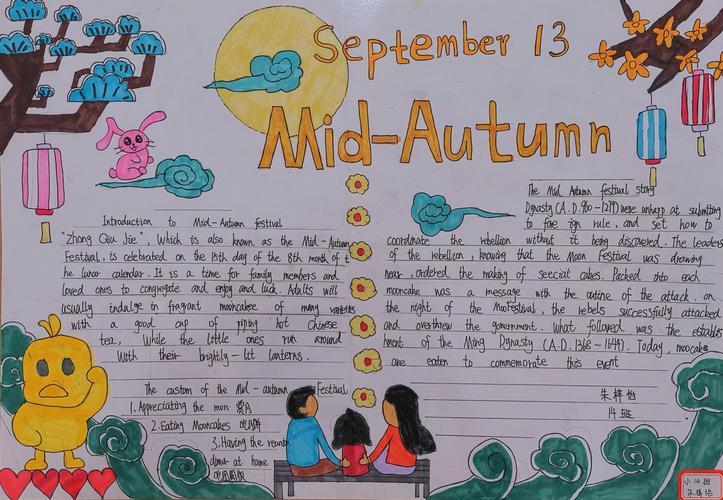 September 13
Mid-Autumn
Introduction to Mid-Autumn festival
"Zhong Qiu Jie", Which is also known as the Mid-Autumn
Festival, is celebrated on the 15th day of the 8th month of t
he lunar calendar. It is a time for family members and
loved ones to congregate and enjoy and luck. Adults will
usually indulge in fragrant mooncakes of many varieties
with a good cup of piping hot Chinese
tea, While the little ones run around
With their brightly-lit lanterns.
The custom of the Mid-autumn Festival
1. Appreciating the mon 赏月
2. Eating Mooncakes 吃月饼
3. Having the reunion
at home
The Mid Autumn festival story
Dynasty (A.D. 960-1279) were unhapp at submitting
to fore ign rule, and set how to
coordinate the rebellion without it being discovered. The leaders
of the rebellion, knowing that the Moon Festival was drawing
near, ordered the making of seecial cakes. Packed into each
mooncake was a message with the outine of the attack. on
the night of the MoFestival, the rebels successfully attacked
and overthrew the government. What followed was the establis
hment of the Ming Dynasty (A.D. 1368-1644). Today, mooncake
are eaten to commemorate this event
14班